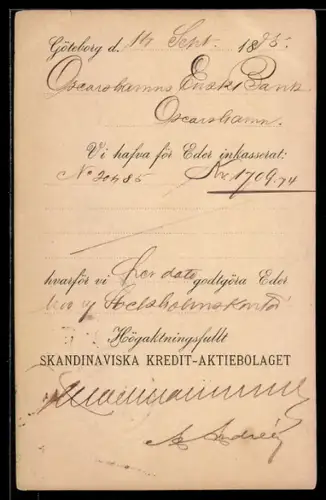 Göteborg d. 14 Sept. 1885.
Oscarshamns Enski Bank
Oscarshamn.
Vi hafva för Eder inkasserat:
No 20485 Kr 1709.74
hvarför vi per dato godtgöra Eder
Högaktningsfullt
SKANDINAVISKA KREDIT-AKTIEBOLAGET